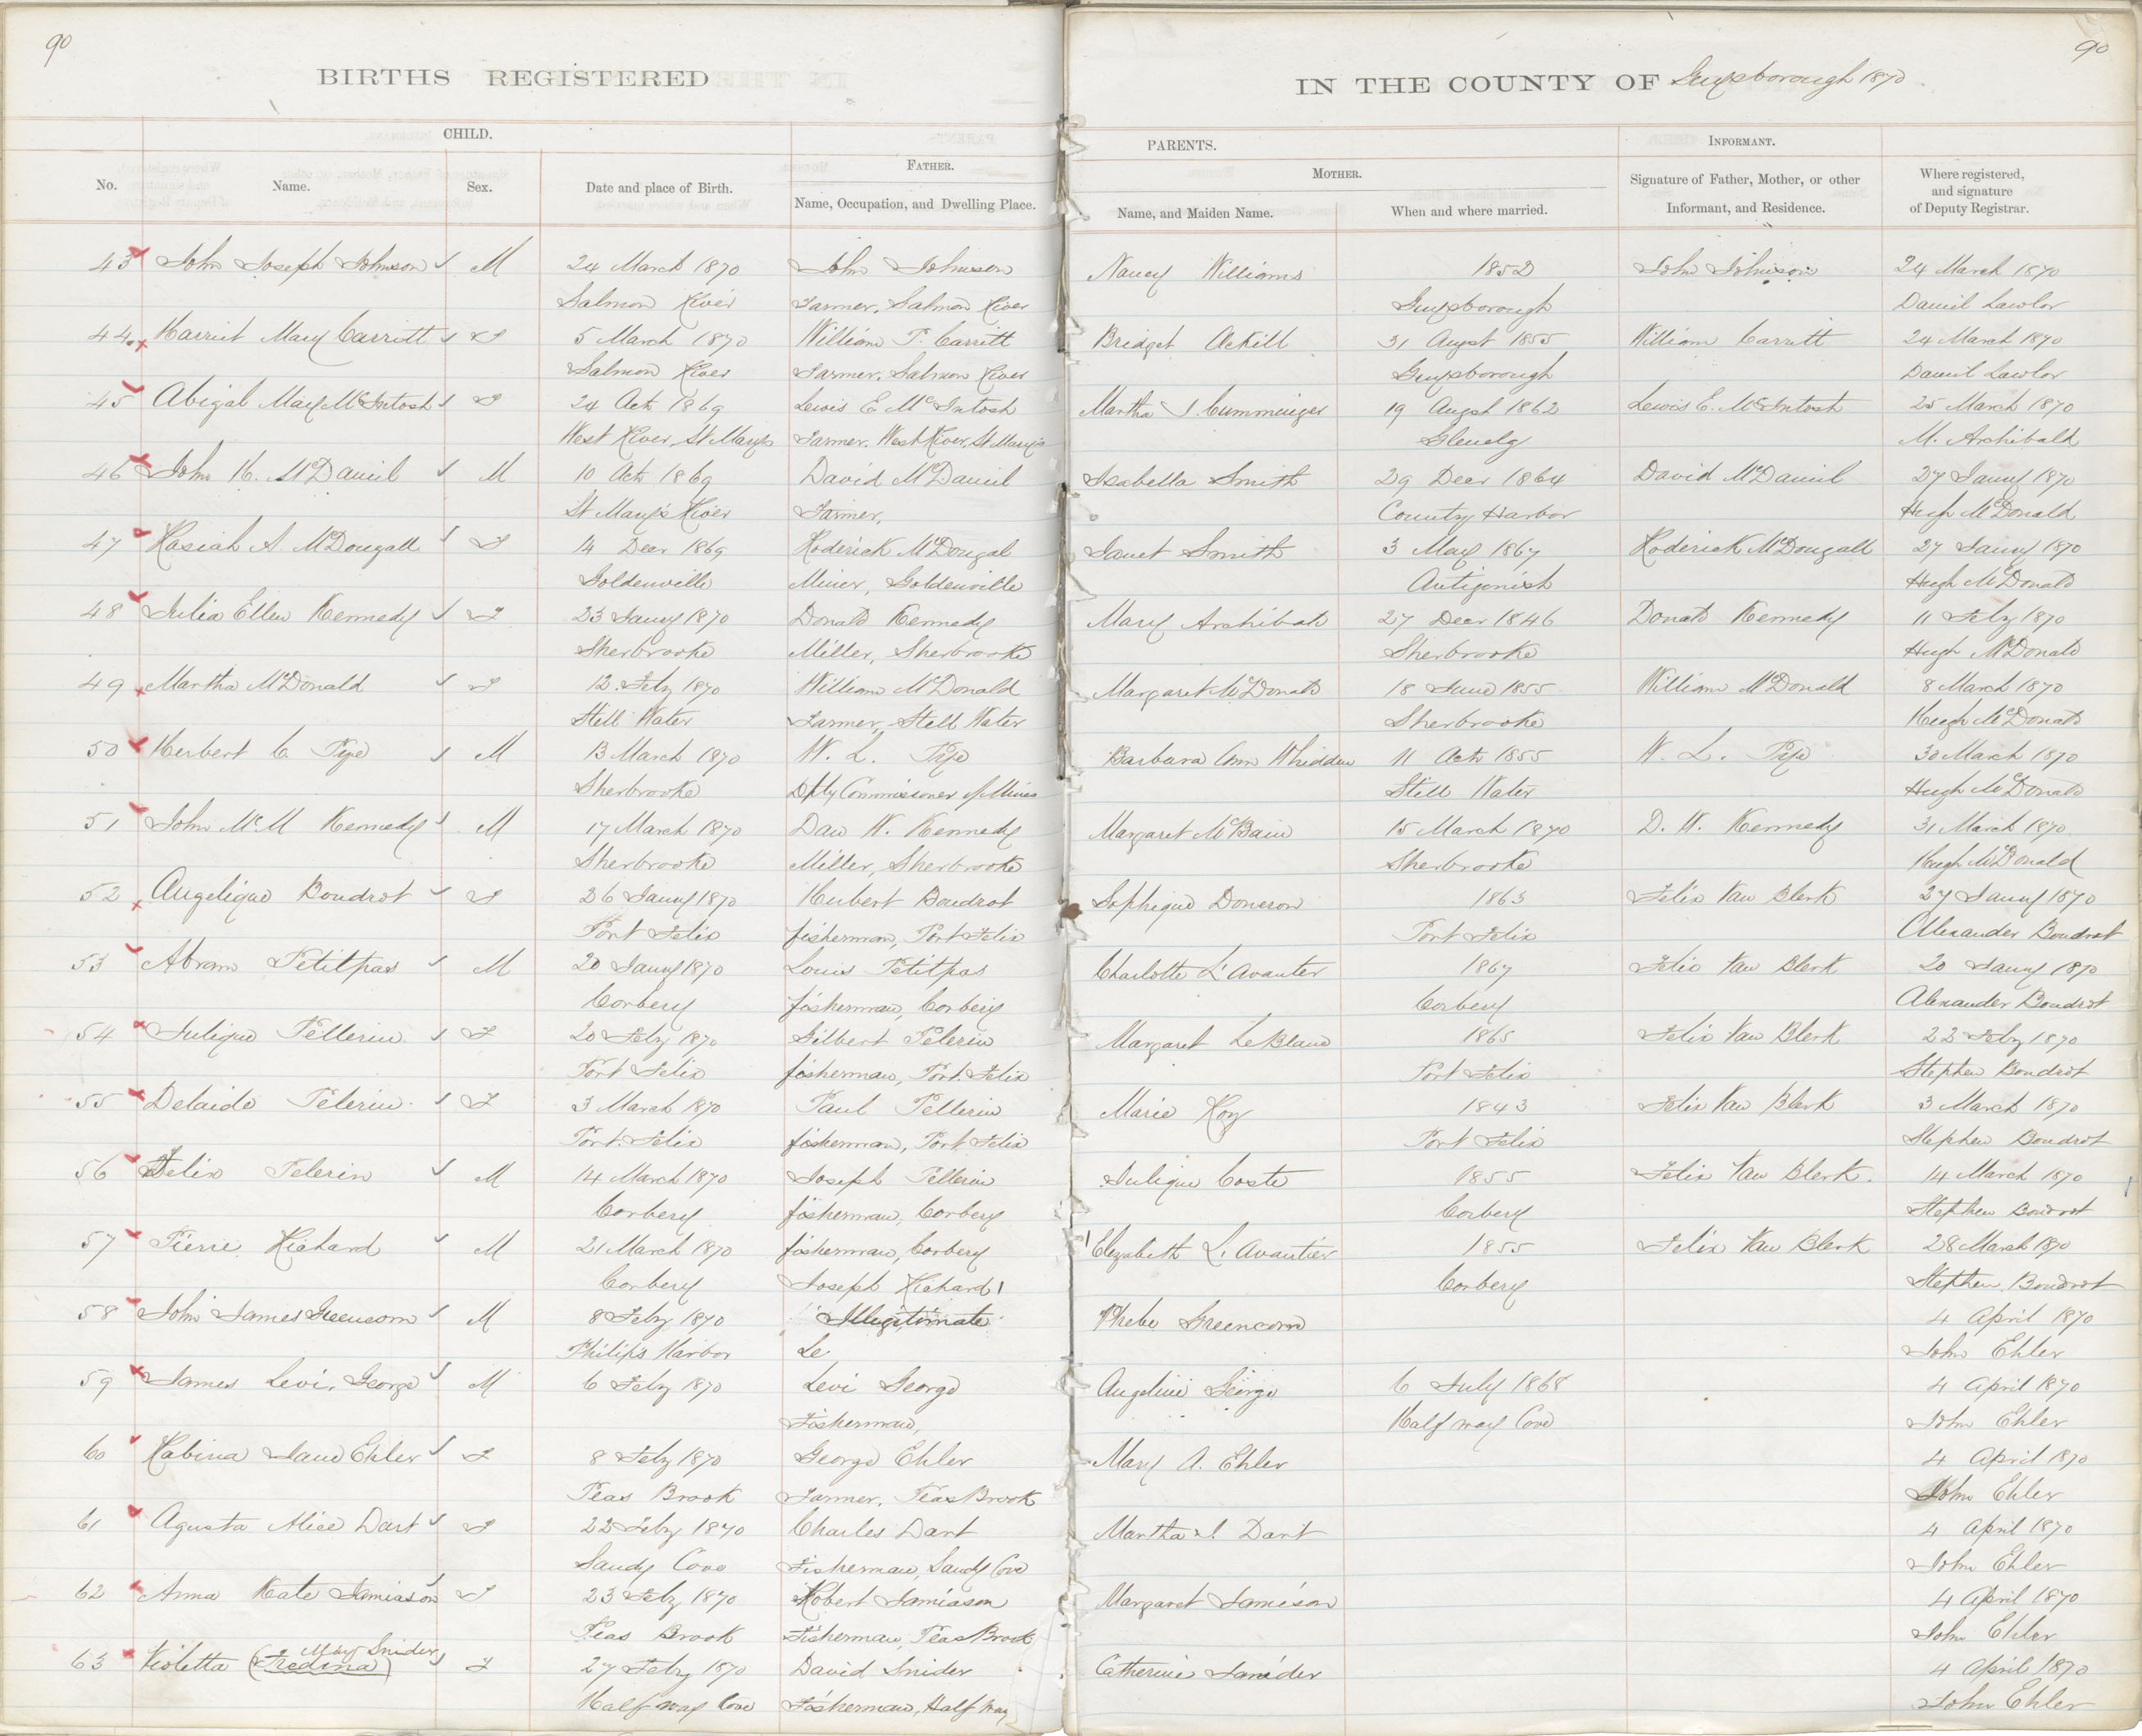 90
90
BIRTHS REGISTERED
IN THE COUNTY OF Guysborough 1870
CHILD.
PARENTS.
INFORMANT.
No.
Name.
Sex.
Date and place of Birth.
FATHER.
Name, Occupation, and Dwelling Place.
MOTHER.
Name, and Maiden Name.
When and where married.
Signature of Father, Mother, or other
Informant, and Residence.
Where registered,
and signature
of Deputy Registrar.
43 John Joseph Johnson M 24 March 1870 John Johnson Nancy Williams 1852 John Johnson 24 March 1870
Salmon River Farmer, Salmon River Guysborough Daniel Lawlor
44 Harriet Mary Carritt F 5 March 1870 William T. Carritt Bridget Ackill 31 Augst 1855 William Carritt 24 March 1870
Salmon River Farmer, Salmon River Guysborough Daniel Lawlor
45 Abigal Mary McIntosh F 24 Octr 1869 Lewis E McIntosh Martha J Cumminger 19 Augst 1862 Lewis E. McIntosh 25 March 1870
West River, St Marys Farmer, West River, St Marys Glenelg M. Archibald
46 John H. McDaniel M 10 Octr 1869 David McDaniel Isabella Smith 29 Decr 1864 David McDaniel 27 Jany 1870
St Marys River Farmer, Country Harbor Hugh McDonald
47 Hasiah A McDougall F 14 Decr 1869 Roderick McDougal Janet Smith 3 May 1867 Roderick McDougall 27 Jany 1870
Goldenville Miner, Goldenville Antigonish Hugh McDonald
48 Julia Ellen Kennedy F 23 Jany 1870 Donald Kennedy Mary Archibald 27 Decr 1846 Donald Kennedy 11 Feby 1870
Sherbrooke Miller, Sherbrooke Sherbrooke Hugh McDonald
49 Martha McDonald F 12 Feby 1870 William McDonald Margaret McDonald 18 June 1855 William McDonald 8 March 1870
Still Water Farmer, Still Water Sherbrooke Hugh McDonald
50 Herbert C. Pye M 13 March 1870 W. L. Pye Barbara Ann Whidden 11 Octr 1855 W. L. Pye 30 March 1870
Sherbrooke Dpty Commissioner of Mines Still Water Hugh McDonald
51 John McM Kennedy M 17 March 1870 Dan W. Kennedy Margaret McBain 15 March 1870 D. W. Kennedy 31 March 1870
Sherbrooke Miller, Sherbrooke Sherbrooke Hugh McDonald
52 Angelique Boudrot F 26 Jany 1870 Hubert Boudrot Sophique Doneron 1863 Felix Van Blerk 27 Jany 1870
Port Felix fisherman, Port Felix Port Felix Alexander Boudrot
53 Abram Petitpas M 20 Jany 1870 Louis Petitpas Charlotte L'Avanter 1867 Felix Van Blerk 20 Jany 1870
Corbery fisherman, Corbery Corbery Alexander Boudrot
54 Julique Pellerin F 20 Feby 1870 Gilbert Pelerin Margaret LeBlanc 1865 Felix Van Blerk 22 Feby 1870
Port Felix fisherman, Port Felix Port Felix Stephen Boudrot
55 Delaide Pelerin F 3 March 1870 Paul Pellerin Marie Roy 1843 Felix Van Blerk 3 March 1870
Port Felix fisherman, Port Felix Port Felix Stephen Boudrot
56 Felix Pelerin M 14 March 1870 Joseph Pellerin Julique Coste 1855 Felix Van Blerk. 14 March 1870
Corbery fisherman, Corbery Corbery Stephen Boudrot
57 Pierre Richard M 21 March 1870 fisherman, Corbery Elizabeth L'Avantier 1855 Felix Van Blerk 28 March 1870
Corbery Joseph Richard Corbery Stephen Boudrot
58 John James Greencorn M 8 Feby 1870 Illegitimate Phebe Greencorn 4 April 1870
Philips Harbor Le John Ehler
59 James Levi George M 6 Feby 1870 Levi George Angeline George 6 July 1868 4 April 1870
Fisherman, Half way Cove John Ehler
60 Rabina Jane Ehler F 8 Feby 1870 George Ehler Mary A. Ehler 4 April 1870
Peas Brook Farmer, Peas Brook John Ehler
61 Agusta Alice Dart F 22 Feby 1870 Charles Dart Martha J. Dart 4 April 1870
Sandy Cove Fisherman, Sandy Cove John Ehler
62 Anna Kate Jamiason F 23 Feby 1870 Robert Jamiason Margaret Jamison 4 April 1870
Peas Brook Fisherman, Peas Brook John Ehler
May Snider
63 Violetta (Fredina) F 27 Feby 1870 David Snider Catherine Snider 4 April 1870
Half way Cove Fisherman, Half Way John Ehler